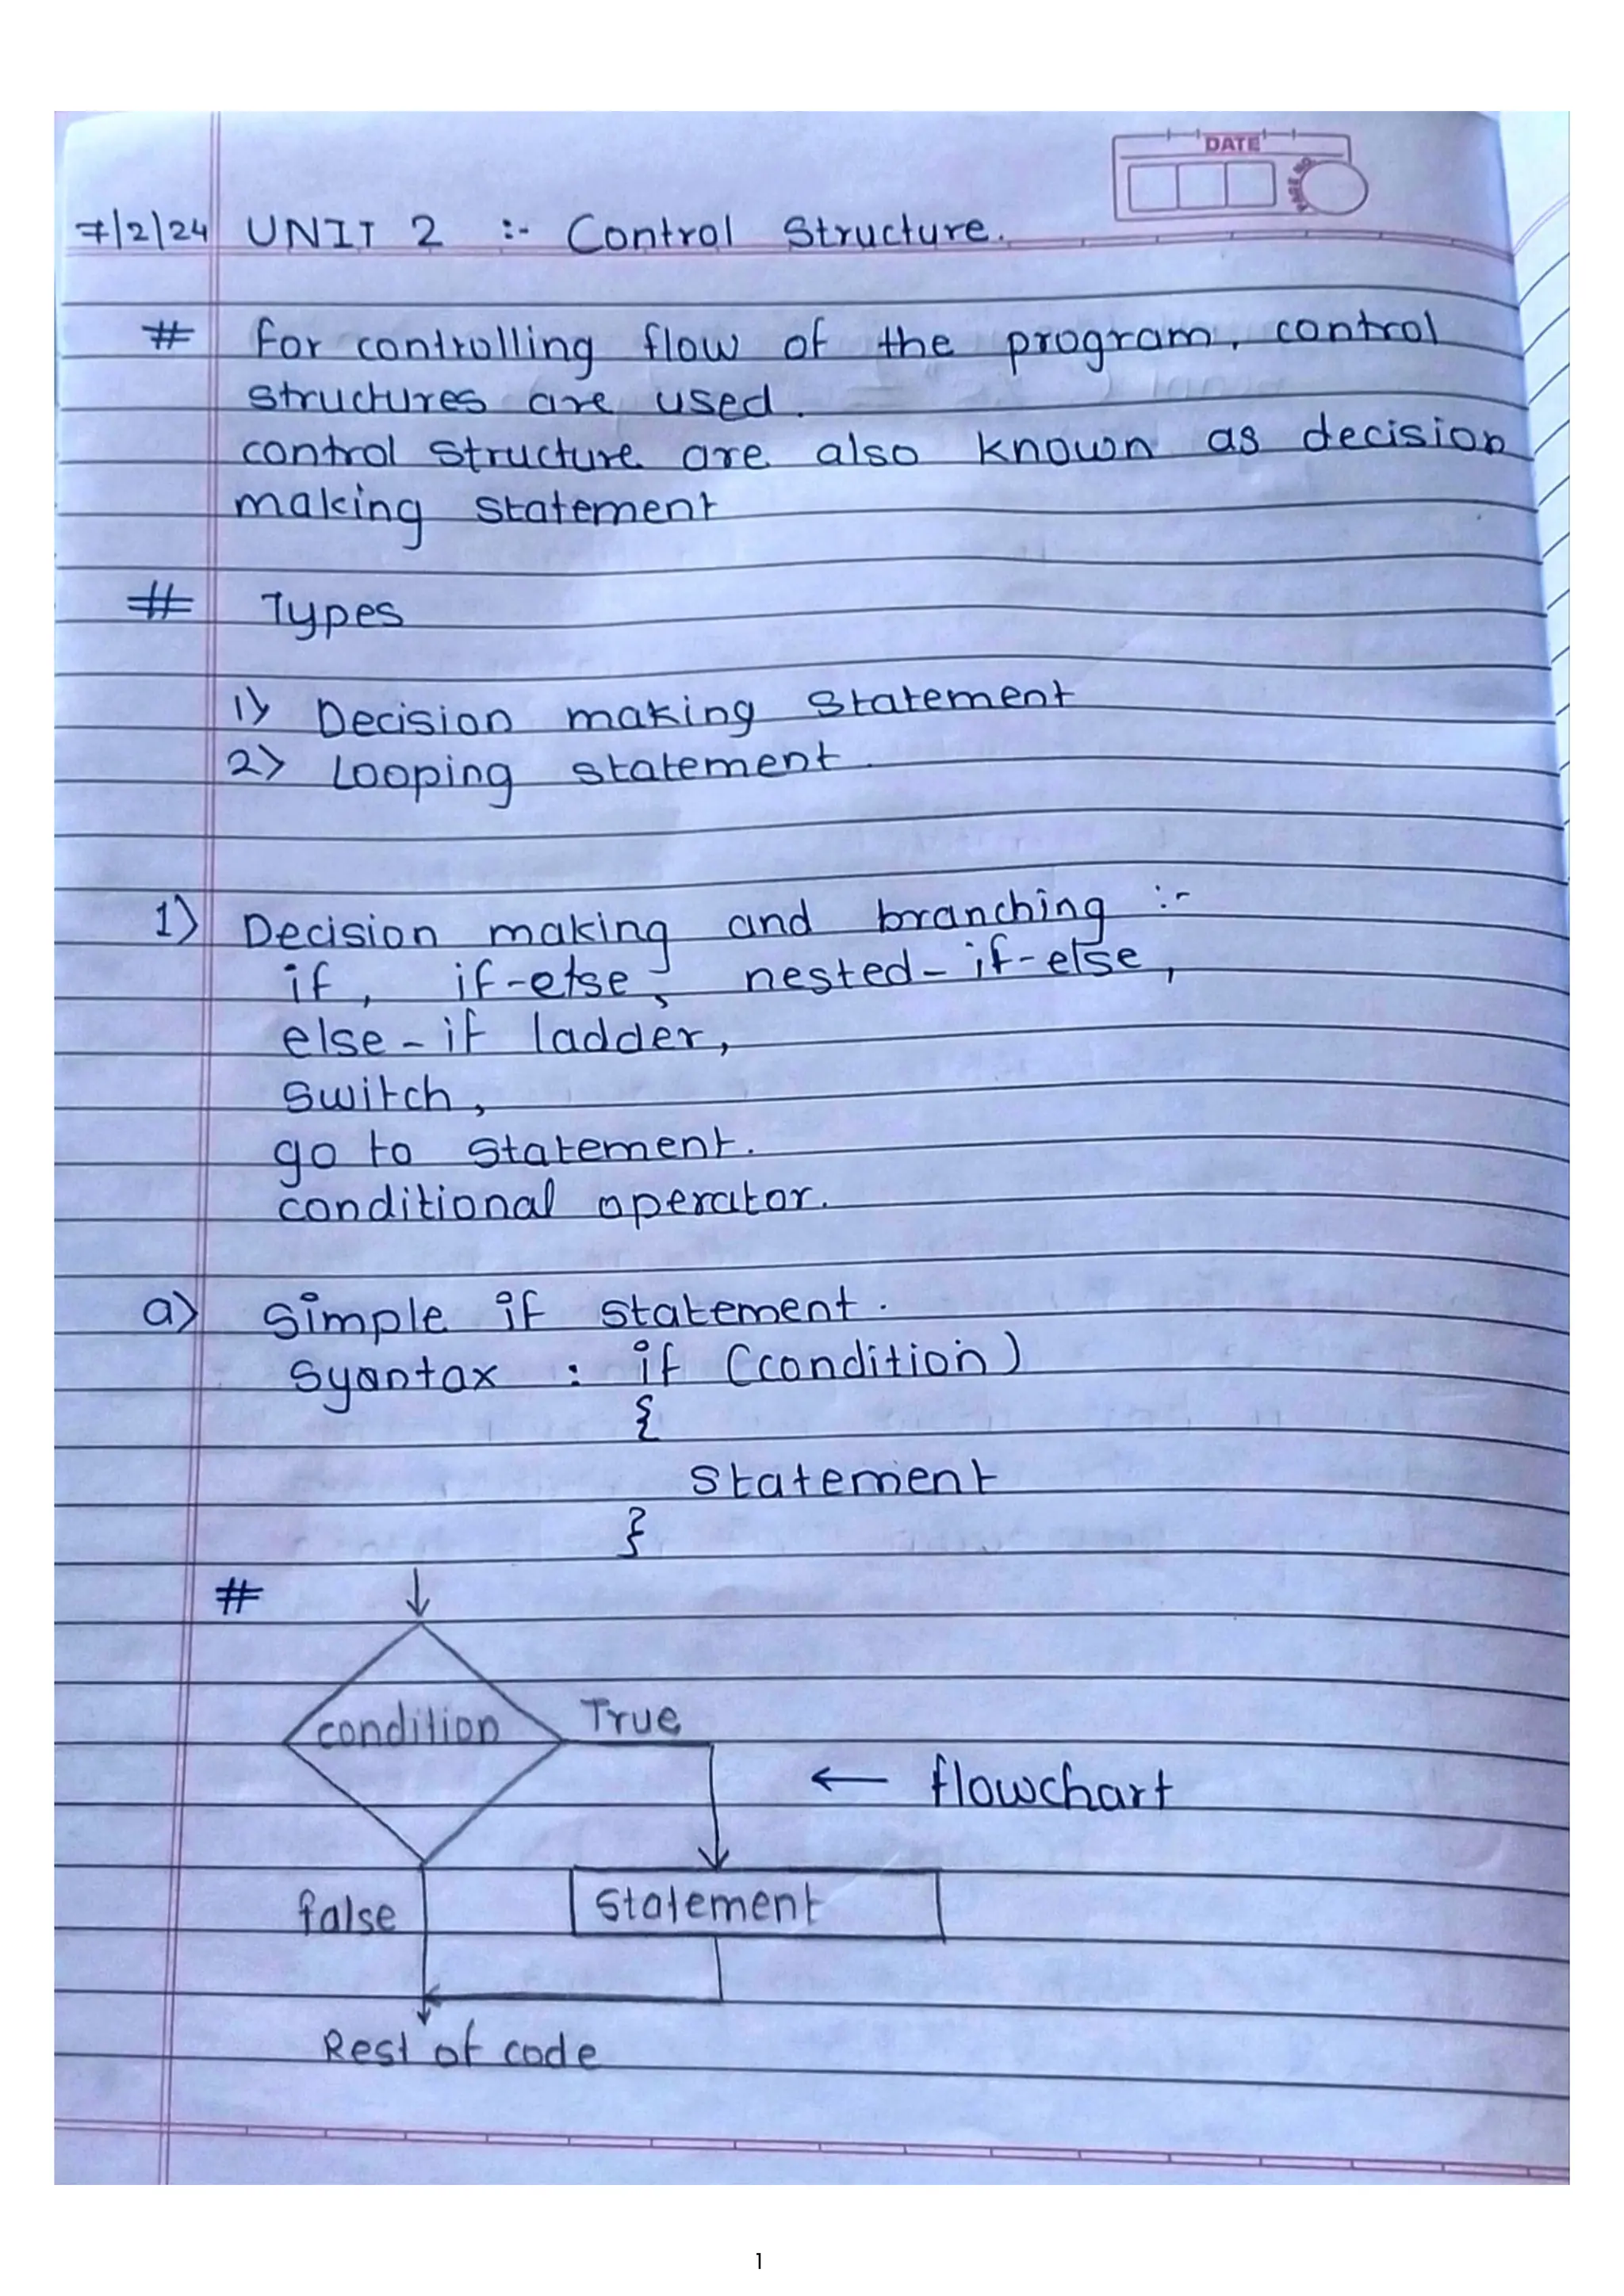 DATE
PAGE NO.
7/2/24 UNIT 2 :- Control Structure.
# For controlling flow of the program, control
structures are used.
control structure are also known as decision
making statement
# Types
1) Decision making statement
2) Looping statement.
1) Decision making and branching :-
if, if-else, nested-if-else,
else-if ladder,
switch,
go to statement.
conditional operator.
a) Simple if statement.
Syantax : if (condition)
{
statement
}
#
condition True
← flowchart
false statement
Rest of code
1